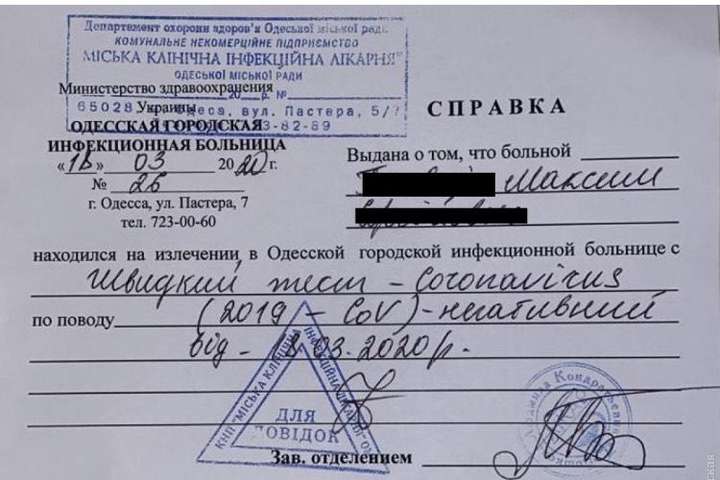 Департамент охорони здоров'я Одеської міської ради
КОМУНАЛЬНЕ НЕКОМЕРЦІЙНЕ ПІДПРИЄМСТВО
"МІСЬКА КЛІНІЧНА ІНФЕКЦІЙНА ЛІКАРНЯ"
ОДЕСЬКОЇ МІСЬКОЇ РАДИ
Министерство здравоохранения
20 р. №
Украины
65028, Одеса, вул. Пастера, 5/7
ОДЕССКАЯ ГОРОДСКАЯ
3-82-89
СПРАВКА
ИНФЕКЦИОННАЯ БОЛЬНИЦА
«18» 03 2020 г.
Выдана о том, что больной
№ 26
Максим
г. Одесса, ул. Пастера, 7
тел. 723-00-60
находился на излечении в Одесской городской инфекционной больнице с
Швидкий тест - Coronavirus
по поводу (2019 - CoV) - негативний
від - 18.03.2020 р.
КНП "МІСЬКА КЛІНІЧНА ІНФЕКЦІЙНА ЛІКАРНЯ"
ДЛЯ
ДОВІДОК
Зав. отделением